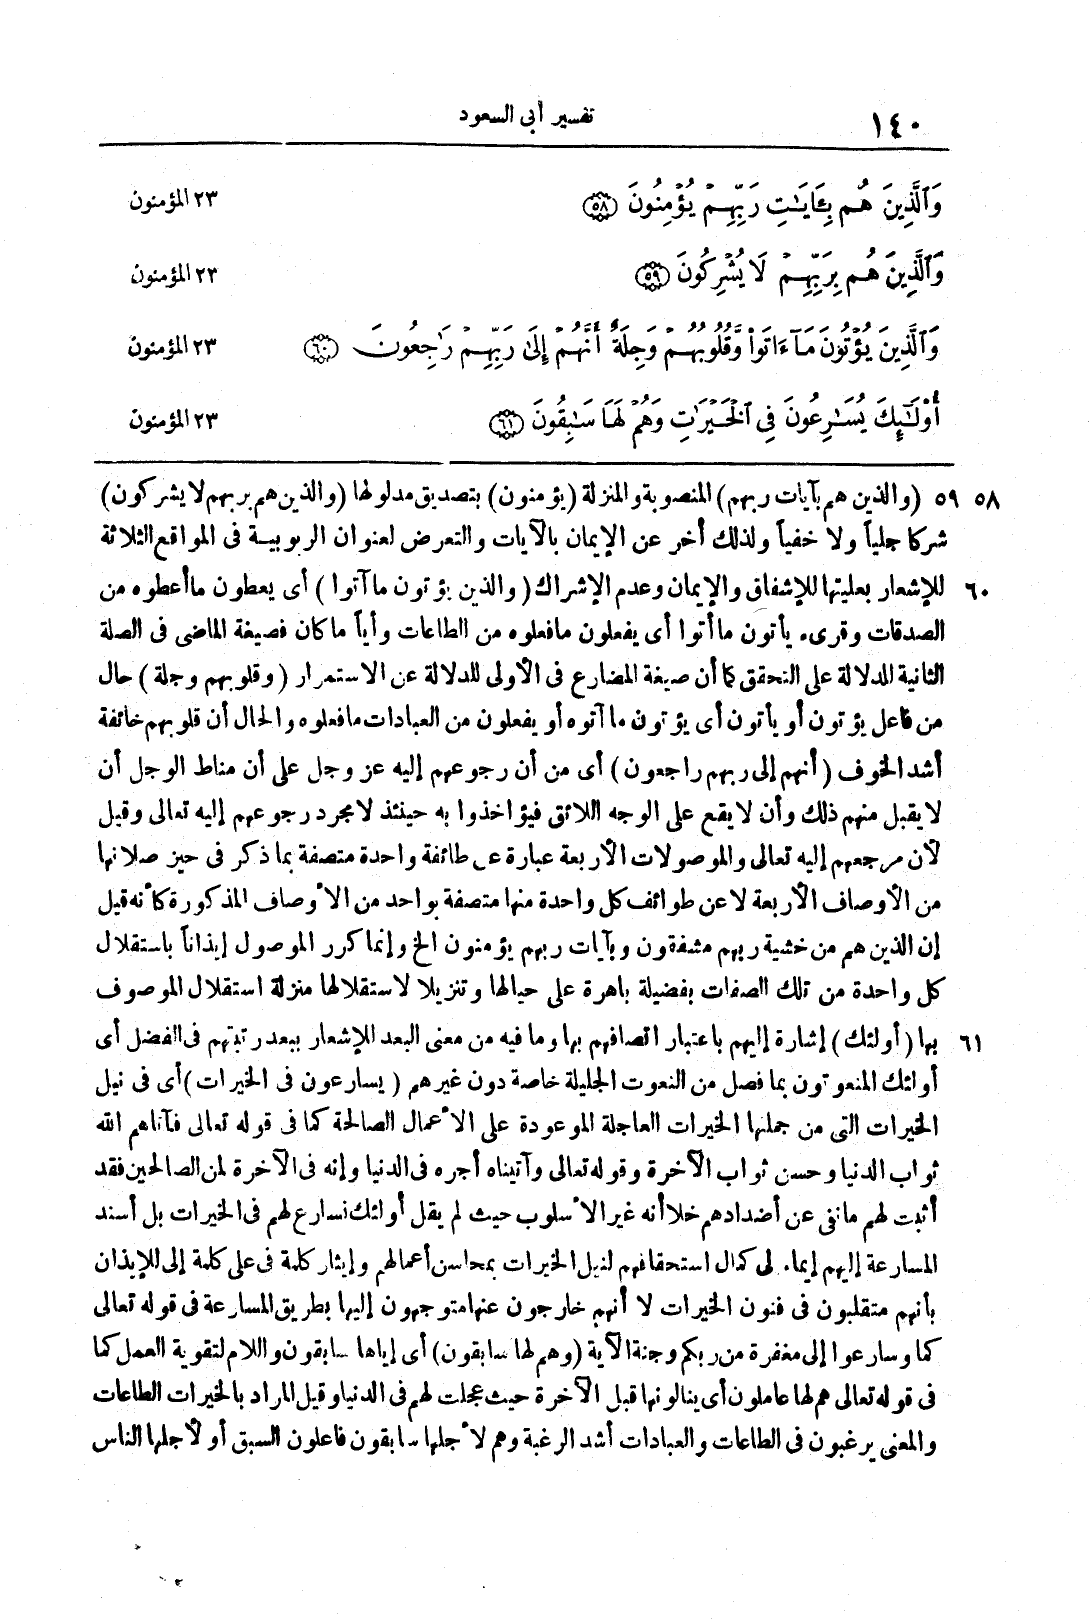 ١٤٠ تفسير أبى السعود
وَٱلَّذِينَ هُم بِـَٔايَـٰتِ رَبِّهِمْ يُؤْمِنُونَ ﴿٥٨﴾ ٢٣ المؤمنون
وَٱلَّذِينَ هُم بِرَبِّهِمْ لَا يُشْرِكُونَ ﴿٥٩﴾ ٢٣ المؤمنون
وَٱلَّذِينَ يُؤْتُونَ مَآ ءَاتَوا۟ وَّقُلُوبُهُمْ وَجِلَةٌ أَنَّهُمْ إِلَىٰ رَبِّهِمْ رَٰجِعُونَ ﴿٦٠﴾ ٢٣ المؤمنون
أُو۟لَـٰٓئِكَ يُسَـٰرِعُونَ فِى ٱلْخَيْرَٰتِ وَهُمْ لَهَا سَـٰبِقُونَ ﴿٦١﴾ ٢٣ المؤمنون
٥٨ ٥٩ (والذين هم بآيات ربهم) المنصوبة والمنزلة (يؤمنون) بتصديق مدلولها (والذين هم بربهم لا يشركون)
شركا جلياً ولا خفياً ولذلك أخر عن الإيمان بالآيات والتعرض لعنوان الربوبية فى المواقع الثلاثة
٦٠ للإشعار بعليتها للإشفاق والإيمان وعدم الإشراك (والذين يؤتون ما آتوا) أى يعطون ما أعطوه من
الصدقات وقرىء يأتون ما أتوا أى يفعلون ما فعلوه من الطاعات وأياً ما كان فصيغة الماضى فى الصلة
الثانية للدلالة على التحقق كما أن صيغة المضارع فى الأولى للدلالة عن الاستمرار (وقلوبهم وجلة) حال
من فاعل يؤتون أو يأتون أى يؤتون ما آتوه أو يفعلون من العبادات ما فعلوه والحال أن قلوبهم خائفة
أشد الخوف (أنهم إلى ربهم راجعون) أى من أن رجوعهم إليه عز وجل على أن مناط الوجل أن
لا يقبل منهم ذلك وأن لا يقع على الوجه اللائق فيؤاخذوا به حينئذ لا مجرد رجوعهم إليه تعالى وقيل
لأن مرجعهم إليه تعالى والموصولات الأربعة عبارة عن طائفة واحدة متصفة بما ذكر فى حيز صلاتها
من الأوصاف الأربعة لا عن طوائف كل واحدة منها متصفة بواحد من الأوصاف المذكورة كأنه قيل
إن الذين هم من خشية ربهم مشفقون وبآيات ربهم يؤمنون الخ وإنما كرر الموصول إيذاناً باستقلال
كل واحدة من تلك الصفات بفضيلة باهرة على حيالها وتنزيلا لاستقلالها منزلة استقلال الموصوف
٦١ بها (أولئك) إشارة إليهم باعتبار اتصافهم بها وما فيه من معنى البعد للإشعار ببعد رتبتهم فى الفضل أى
أولئك المنعوتون بما فصل من النعوت الجليلة خاصة دون غيرهم (يسارعون فى الخيرات) أى فى نيل
الخيرات التى من جملتها الخيرات العاجلة الموعودة على الأعمال الصالحة كما فى قوله تعالى فآتاهم الله
ثواب الدنيا وحسن ثواب الآخرة وقوله تعالى وآتيناه أجره فى الدنيا وإنه فى الآخرة لمن الصالحين فقد
أثبت لهم ما نفى عن أضدادهم خلا أنه غير الأسلوب حيث لم يقل أولئك نسارع لهم فى الخيرات بل أسند
المسارعة إليهم إيماء لى كمال استحقاقهم لنيل الخيرات بمحاسن أعمالهم وإيثار كلمة فى على كلمة إلى للإيذان
بأنهم متقلبون فى فنون الخيرات لا أنهم خارجون عنها متوجهون إليها بطريق المسارعة فى قوله تعالى
كما وسارعوا إلى مغفرة من ربكم وجنة الآية (وهم لها سابقون) أى إياها سابقون واللام لتقوية العمل كما
فى قوله تعالى هم لها عاملون أى ينالونها قبل الآخرة حيث عجلت لهم فى الدنيا وقيل المراد بالخيرات الطاعات
والمعنى يرغبون فى الطاعات والعبادات أشد الرغبة وهم لأجلها سابقون فاعلون السبق أو لأجلها الناس